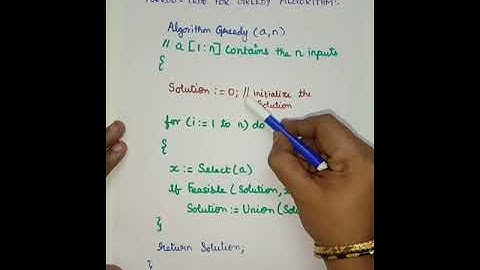 FOR GREEDY ALGORITHM:
Algorithm Greedy (a,n)
// a [1:n] contains the n inputs
{
Solution := 0; // initialize the
Solution
for (i := 1 to n) do
{
x := Select(a)
If Feasible (Solution,
Solution := Union (Solu
}
return Solution;
}